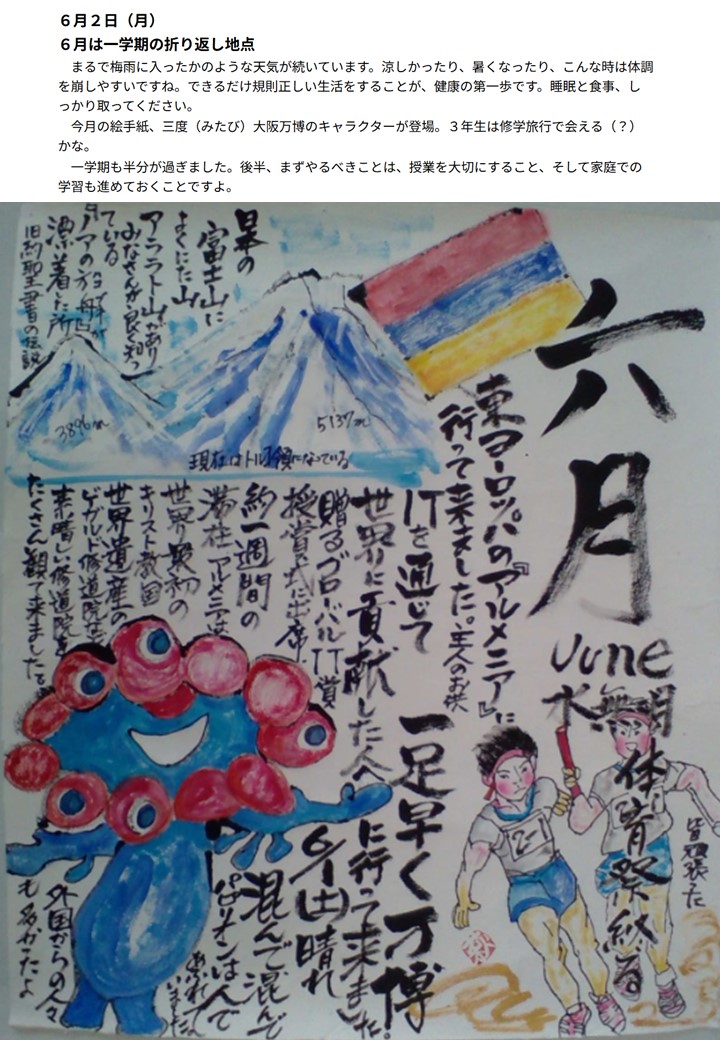 ６月２日（月）
６月は一学期の折り返し地点
まるで梅雨に入ったかのような天気が続いています。涼しかったり、暑くなったり、こんな時は体調
を崩しやすいですね。できるだけ規則正しい生活をすることが、健康の第一歩です。睡眠と食事、し
っかり取ってください。
今月の絵手紙、三度（みたび）大阪万博のキャラクターが登場。３年生は修学旅行で会える（？）
かな。
一学期も半分が過ぎました。後半、まずやるべきことは、授業を大切にすること、そして家庭での
学習も進めておくことですよ。
六月
June
水無月
体育祭終る
皆頑張った
東ヨーロッパの『アルメニア』に
行って来ました。主人のお供
ITを通じて
世界に貢献した人へ
贈るグローバルIT賞
授賞式に出席
約一週間の
滞在 アルメニアは
世界最初の
キリスト教国
世界遺産の
ゲガルド修道院など
素晴しい修道院を
たくさん観て来ました
日本の
富士山に
よくにた山
アララト山があり
みなさんが良く知っ
ている
『ノアの箱舟』が
漂着した所
旧約聖書の伝説
3896m
5137m
現在はトルコ領になっている
一足早く万博
に行って来ました。
6/1(日)晴れ
混んで混んで
パビリオンは人で
あふれて
いました
外国からの人々
も多かったよ